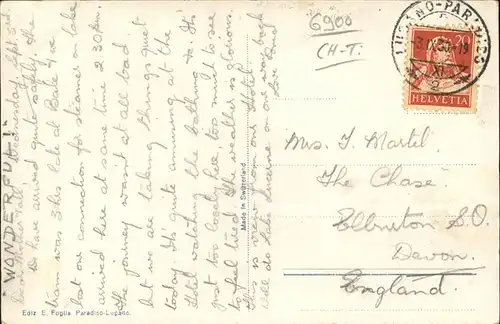 "WONDERFUL!"
Wednesday Sept 3rd
We have arrived quite safely, the
train was 3 hrs late at Bale & we
lost our connection for steamer on lake
arrived here at same time 2 30 pm.
The journey wasnt at all bad
but we are taking things quiet
today. It's quite amusing at the
Hotel watching the bathing etc. It's
just too lovely here, too much to see
to feel tired. The weather is glorious.
This is view from our Hotel
Shall do Lake Lucerne on our way back
Love
Ediz. E. Foglia Paradiso-Lugano.
Made in Switzerland
6900
CH-T.
LUGANO-PARADISO
20
HELVETIA
Mrs. J. Martel.
The Chase.
Elburton S.O.
Devon.
England.